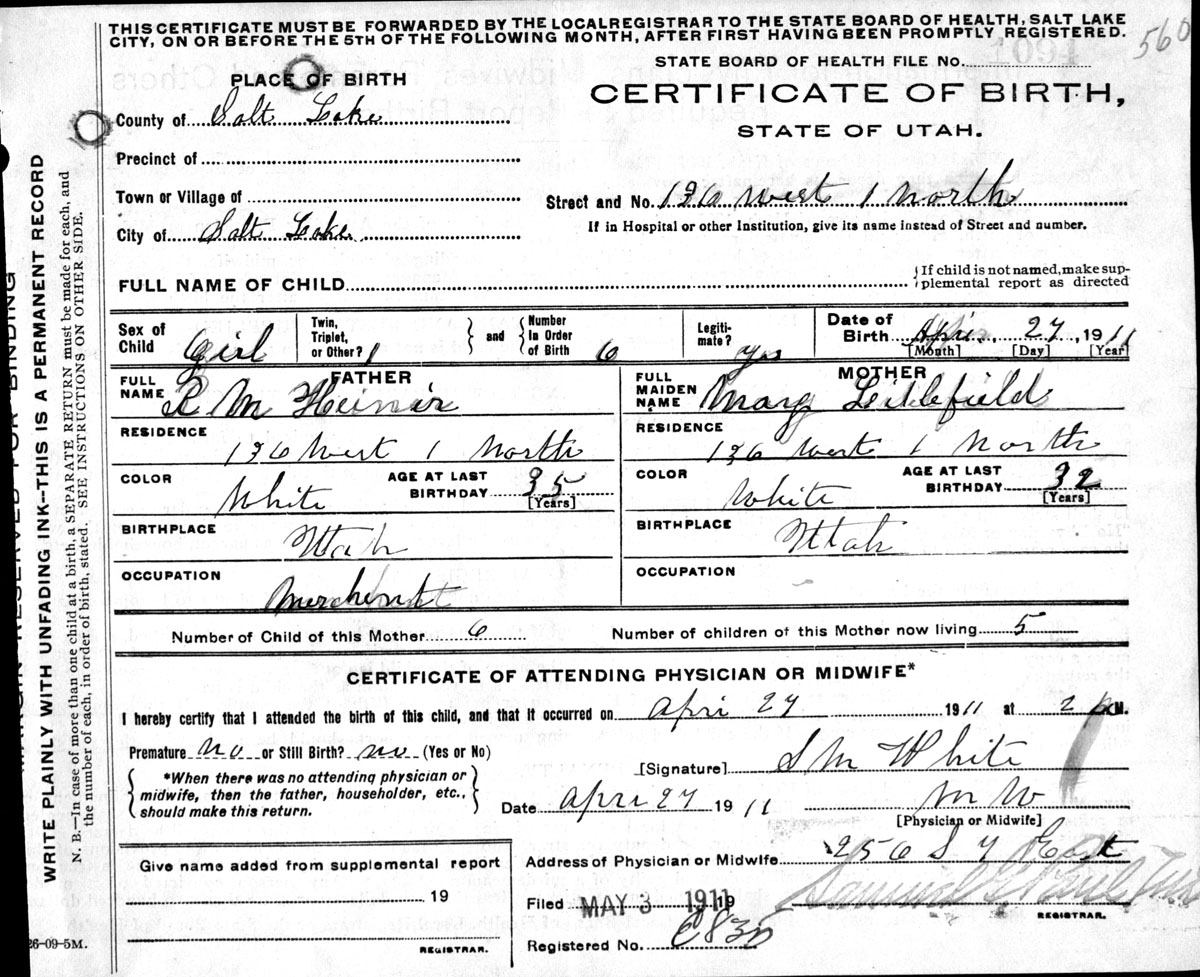 THIS CERTIFICATE MUST BE FORWARDED BY THE LOCAL REGISTRAR TO THE STATE BOARD OF HEALTH, SALT LAKE
CITY, ON OR BEFORE THE 5TH OF THE FOLLOWING MONTH, AFTER FIRST HAVING BEEN PROMPTLY REGISTERED.
560
PLACE OF BIRTH
STATE BOARD OF HEALTH FILE No. 1094
CERTIFICATE OF BIRTH,
STATE OF UTAH.
County of Salt Lake
Precinct of
Town or Village of
Street and No. 136 West 1 North
City of Salt Lake
If in Hospital or other Institution, give its name instead of Street and number.
FULL NAME OF CHILD
If child is not named, make sup-
plemental report as directed
Sex of Child Girl
Twin, Triplet, or Other? 1
and
Number In Order of Birth 6
Legiti-mate? Yes
Date of Birth Apri 27, 1911
[Month] [Day] [Year]
FATHER
FULL NAME R M
MOTHER
FULL MAIDEN NAME Mary Littlefield
RESIDENCE 136 West 1 North
RESIDENCE 136 West 1 North
COLOR White
AGE AT LAST BIRTHDAY 35
[Years]
COLOR White
AGE AT LAST BIRTHDAY 32
[Years]
BIRTHPLACE Utah
BIRTHPLACE Utah
OCCUPATION Merchent
OCCUPATION
Number of Child of this Mother 6
Number of children of this Mother now living 5
CERTIFICATE OF ATTENDING PHYSICIAN OR MIDWIFE*
I hereby certify that I attended the birth of this child, and that it occurred on Apri 27 1911 at 2 P M.
Premature no or Still Birth? no (Yes or No)
*When there was no attending physician or
midwife, then the father, householder, etc.,
should make this return.
[Signature] S M White
Date Apri 27 1911
M W
[Physician or Midwife]
Give name added from supplemental report
19
REGISTRAR.
Address of Physician or Midwife 256 S 7 East
Filed MAY 3 1911 19
REGISTRAR.
Registered No.
26-09-5M.
MARGIN RESERVED FOR BINDING
WRITE PLAINLY WITH UNFADING INK--THIS IS A PERMANENT RECORD
N. B.—In case of more than one child at a birth, a SEPARATE RETURN must be made for each, and
the number of each, in order of birth, stated. SEE INSTRUCTIONS ON OTHER SIDE.